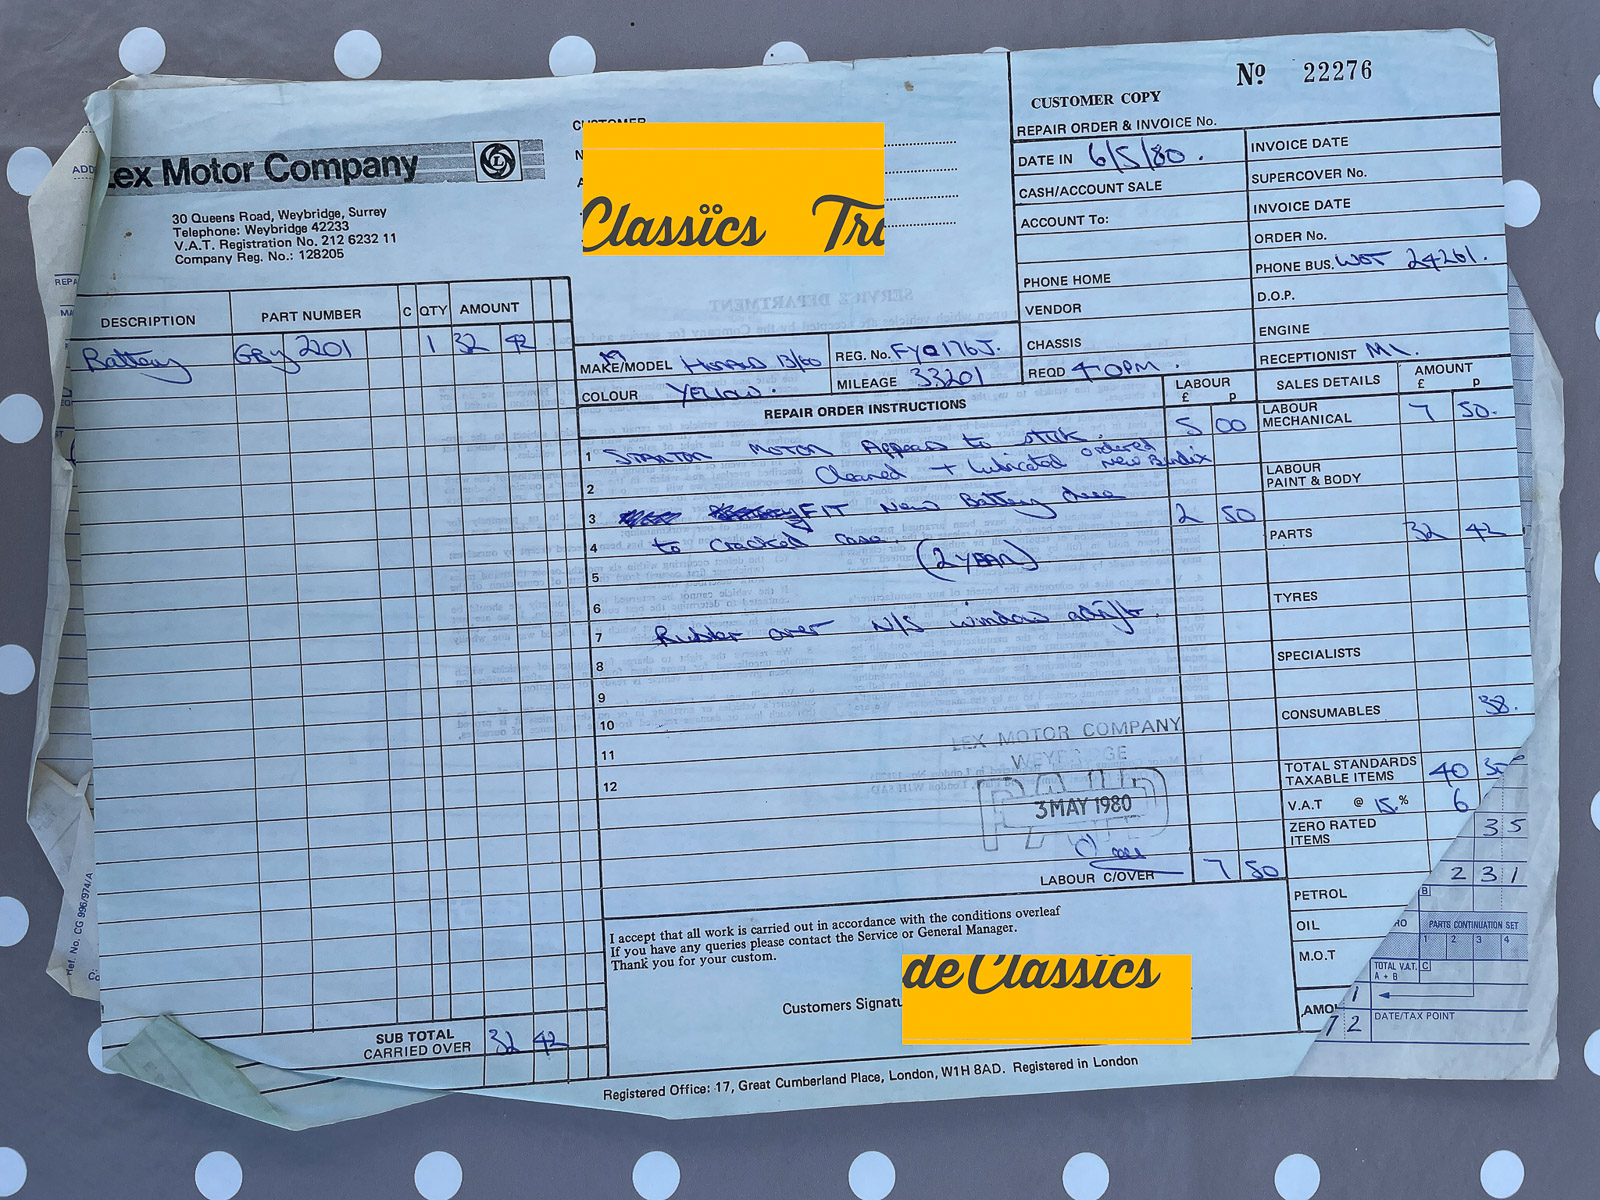 Nº 22276
CUSTOMER COPY
REPAIR ORDER & INVOICE No.
Lex Motor Company
30 Queens Road, Weybridge, Surrey
Telephone: Weybridge 42233
V.A.T. Registration No. 212 6232 11
Company Reg. No.: 128205
CUSTOMER
Classics Tra
DATE IN 6/5/80.
CASH/ACCOUNT SALE
ACCOUNT To:
PHONE HOME
VENDOR
CHASSIS
REQD 4.0PM.
INVOICE DATE
SUPERCOVER No.
INVOICE DATE
ORDER No.
PHONE BUS. WOT 24261.
D.O.P.
ENGINE
RECEPTIONIST
MAKE/MODEL 13/60
REG. No. FYO176J.
COLOUR YELLOW.
MILEAGE 33201
DESCRIPTION PART NUMBER C QTY AMOUNT
Battery GBY 2201 1 32 42
SUB TOTAL
CARRIED OVER 32 42
REPAIR ORDER INSTRUCTIONS
LABOUR
£ p
1 MOTOR Appears to stick. 5 00
2 Cleaned + lubricated ordered new Bendix
3 FIT New Battery due 2 50
4 to cracked case.
5 (2 YEAR)
6
7 Rubber over N/S window adrift.
8
9
10
11
12
LEX MOTOR COMPANY
WEYBRIDGE
PAID
3 MAY 1980
LABOUR C/OVER 7 50
SALES DETAILS AMOUNT
£ p
LABOUR
MECHANICAL 7 50.
LABOUR
PAINT & BODY
PARTS 32 42
TYRES
SPECIALISTS
CONSUMABLES 38.
TOTAL STANDARDS
TAXABLE ITEMS 40
V.A.T @ 15.% 6
ZERO RATED
ITEMS
35
231
PETROL
OIL
M.O.T
AMO
PARTS CONTINUATION SET
1 2 3 4
TOTAL V.A.T. C
A + B
DATE/TAX POINT
72
I accept that all work is carried out in accordance with the conditions overleaf
If you have any queries please contact the Service or General Manager.
Thank you for your custom.
Customers Signatu
de Classics
Registered Office: 17, Great Cumberland Place, London, W1H 8AD. Registered in London
Ref. No. CG 996/974/A